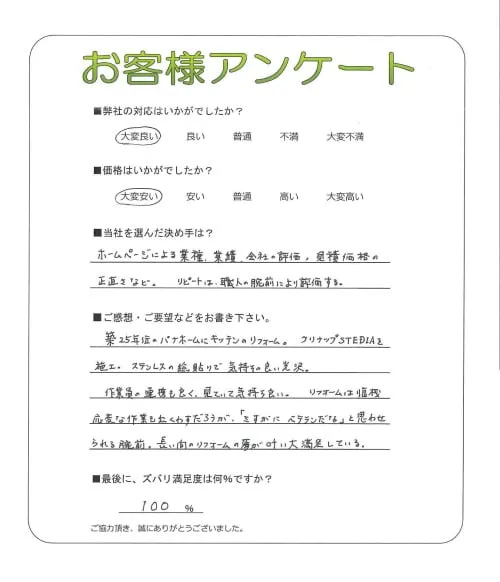 お客様アンケート
■弊社の対応はいかがでしたか？
大変良い 良い 普通 不満 大変不満
■価格はいかがでしたか？
大変安い 安い 普通 高い 大変高い
■当社を選んだ決め手は？
ホームページによる業種、業績、会社の評価、見積価格の
正直さなど。 リピートは、職人の腕前により評価する。
■ご感想・ご要望などをお書き下さい。
築25年位のパナホームにキッチンのリフォーム。 クリナップSTEDIAを
施工。ステンレスの総貼りで気持ちの良い光沢。
作業員の連携も良く、見ていて気持ち良い。 リフォームは臨機
応変な作業も多くわずだろうが、「さすがにベテランだな」と思わせ
られる腕前。長い間のリフォームの夢が叶い大満足している。
■最後に、ズバリ満足度は何％ですか？
100 %
ご協力頂き、誠にありがとうございました。